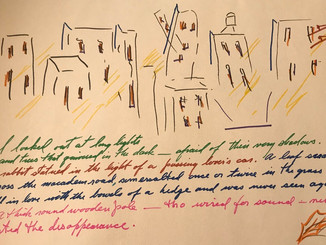 I looked out at long lights
and trees that quivered in the dark — afraid of their very shadows.
rabbit statued in the light of a passing lover's car. A leaf
across the macadam road, somersaulted once or twice in the grass
in love with the bowels of a hedge and was never seen
thick round wooden pole — too
the disappearance.